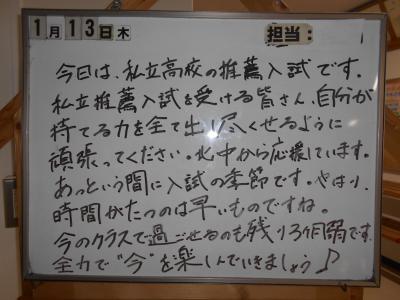 1月13日木 担当：
今日は、私立高校の推薦入試です。
私立推薦入試を受ける皆さん、自分が
持てる力を全て出し尽くせるように
頑張ってください。北中から応援しています。
あっという間に入試の季節です。やはり、
時間がたつのは早いものですね。
今のクラスで過ごせるのも残り3ヶ月弱です。
全力で“今”を楽しんでいきましょう♪